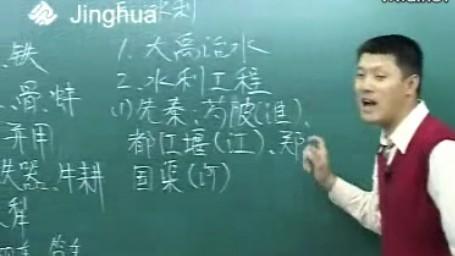 Jinghua
水利
铁
1. 大禹治水
2. 水利工程
骨、蚌
(1)先秦:芍陂(淮)、
并用
都江堰(江)、郑
铁器、牛耕
国渠(河)
犁